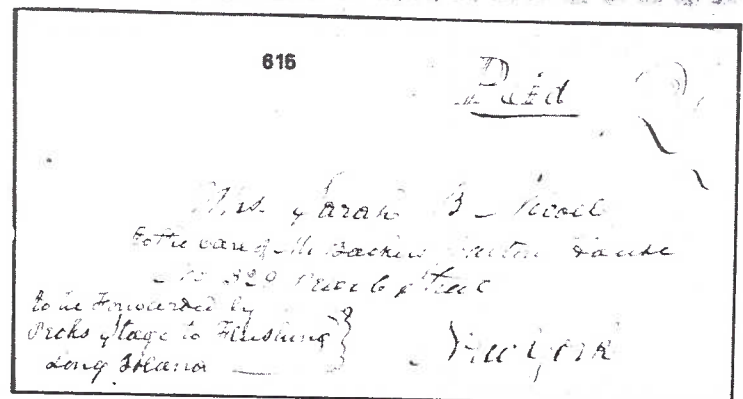 616
Paid
Mrs. Sarah B Nicoll
To the care of Mr Backus House
No 329 Pearl Street
to be Forwarded by
Pecks Stage to Flushing
Long Island
New York